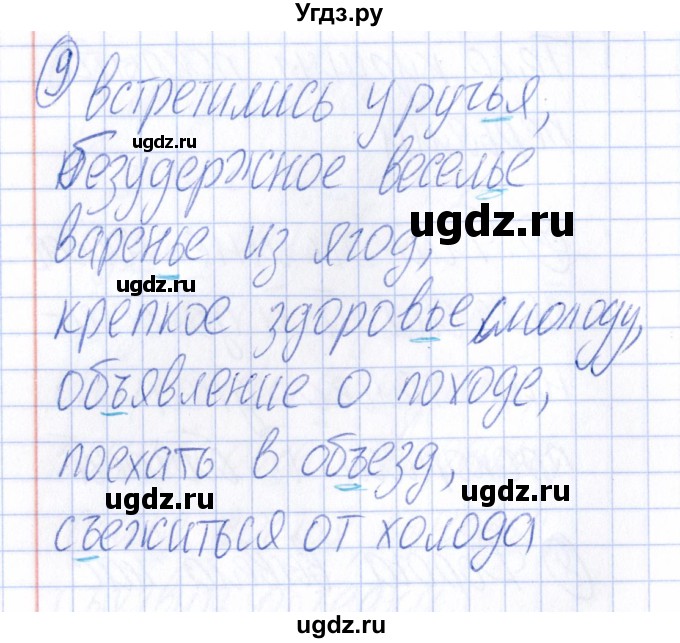 Угдз.ру
9 встретились у ручья,
ugdz.ru
безудержное веселье
ugdz.ru
варенье из ягод,
ugdz.ru
крепкое здоровье смолоду,
ugdz.ru
объявление о походе,
поехать в объезд,
ugdz.ru ugdz.ru
съежиться от холода
ugdz.ru